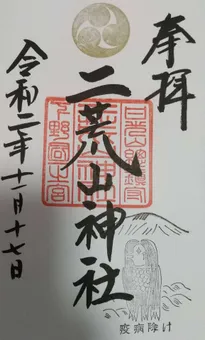 奉拝
二荒山神社
日光山總鎮守
下野國一之宮
令和二年十一月十七日
疫病除け